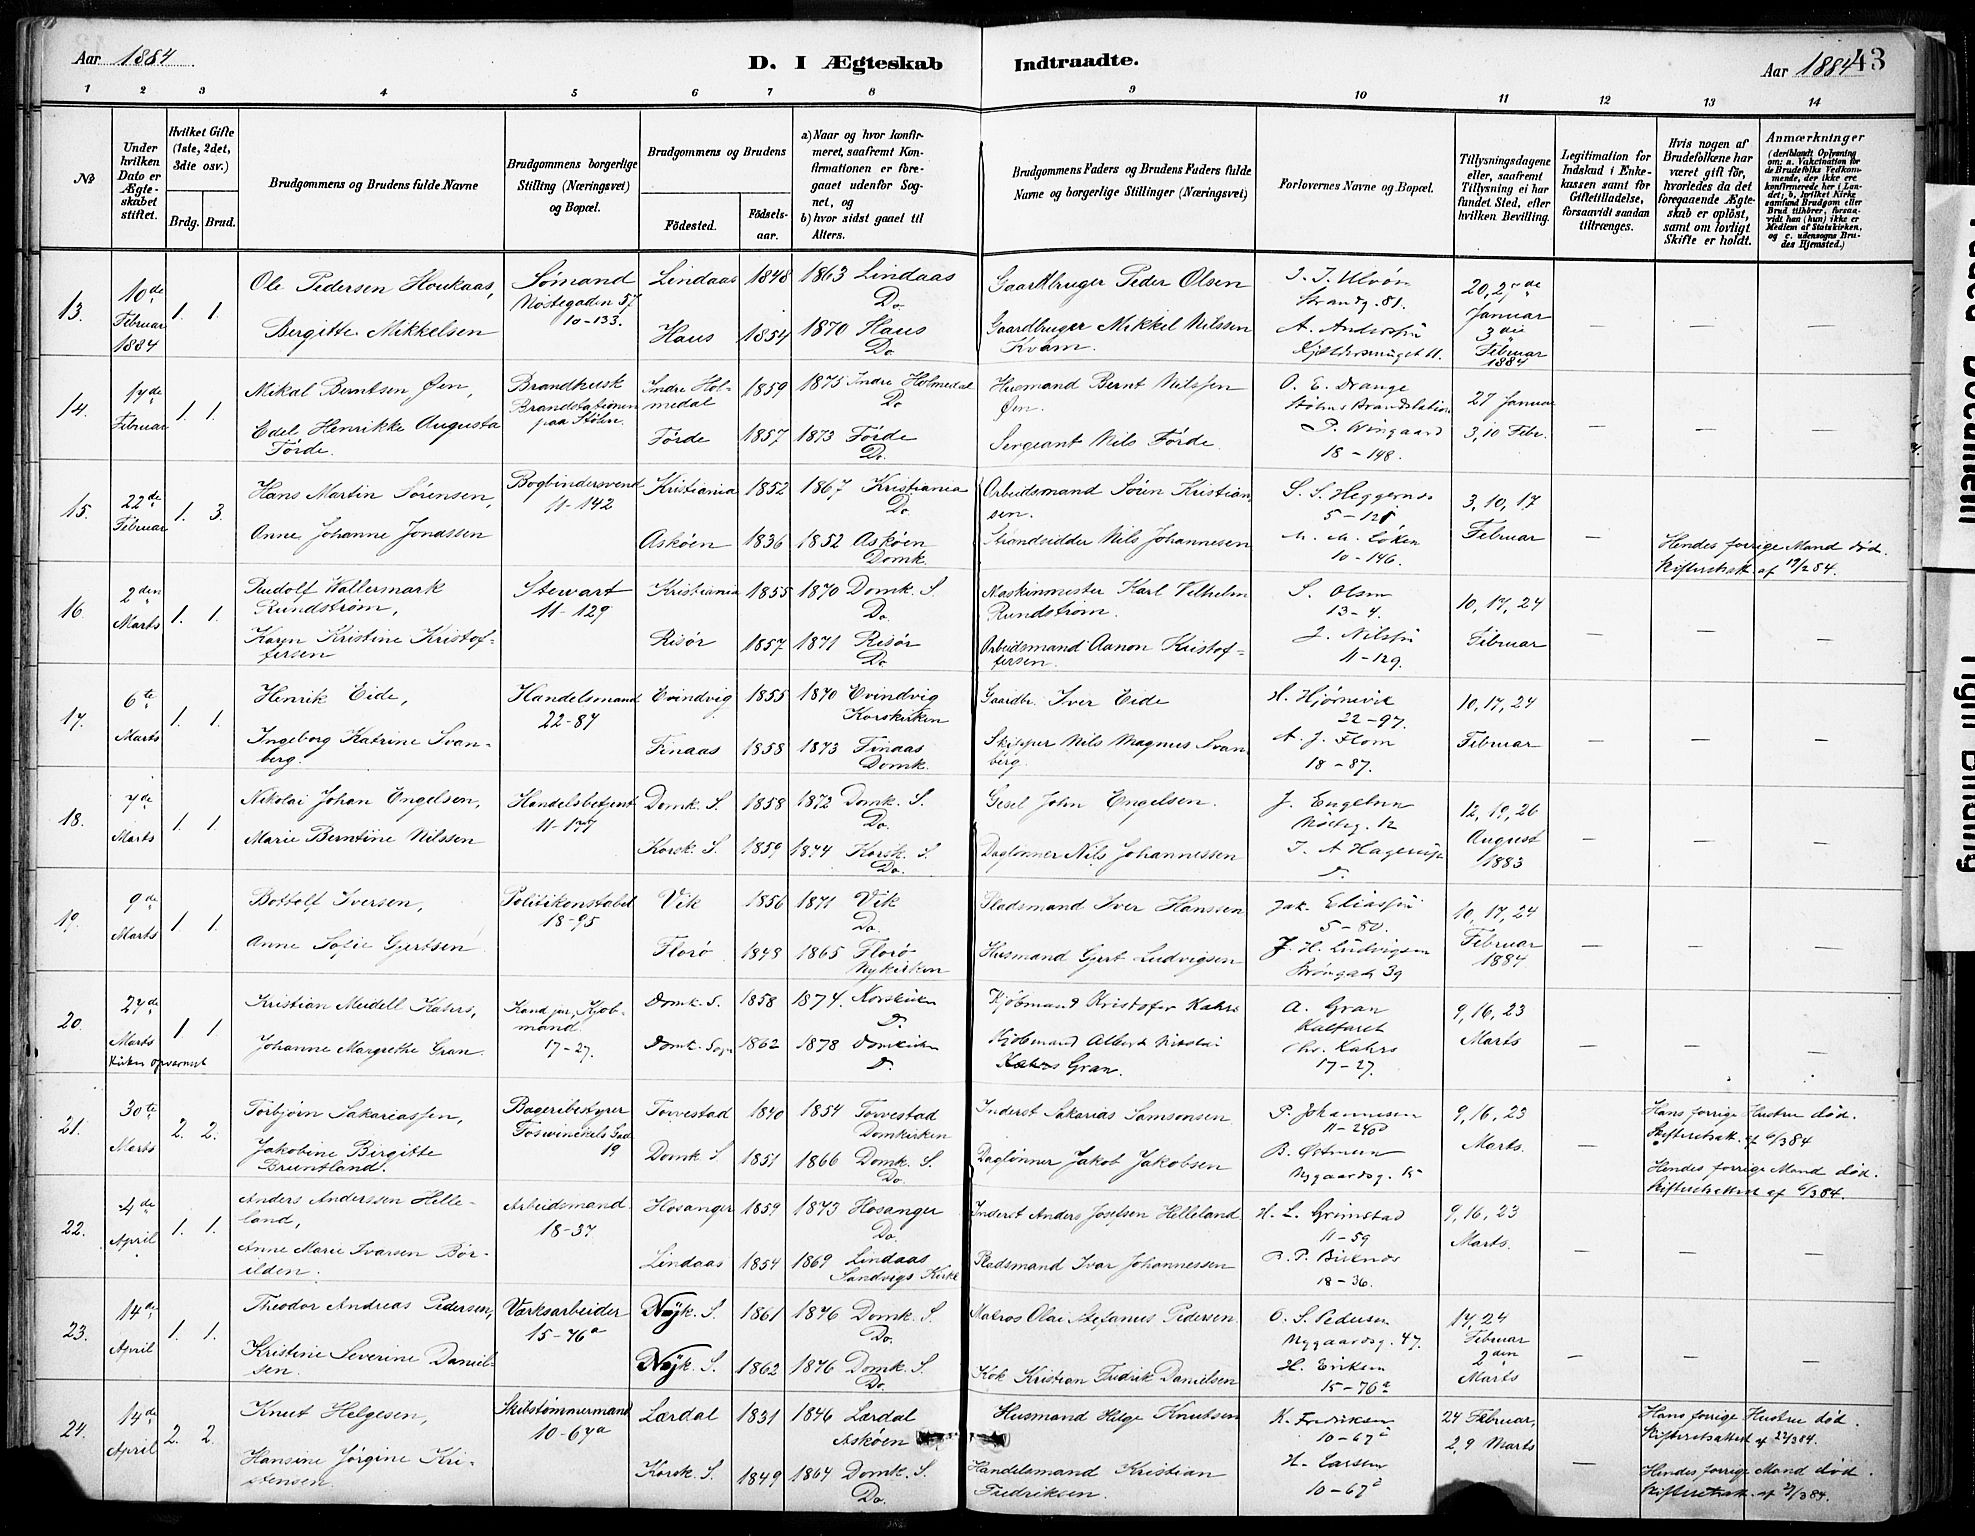 Aar 1884
D. I Ægteskab Indtraadte.
Aar 1884 43
1 2 3 4 5 6 7 8 9 10 11 12 13 14
№
Under hvilken Dato er Ægteskabet stiftet.
Hvilket Gifte (1ste, 2det, 3die osv.)
Brdg. Brud.
Brudgommens og Brudens fulde Navne
Brudgommens borgerlige Stilling (Næringsvei) og Bopæl.
Brudgommens og Brudens
Födested.
Födsels-aar.
a) Naar og hvor konfirmeret, saafremt Konfirmationen er foregaaet udenfor Sognet, og
b) hvor sidst gaaet til Alters.
Brudgommens Faders og Brudens Faders fulde Navne og borgerlige Stillinger (Næringsvei)
Forlovernes Navne og Bopæl.
Tillysningsdagene eller, saafremt Tillysning ei har fundet Sted, efter hvilken Bevilling.
Legitimation for Indskud i Enkekassen samt for Giftetilladelse, forsaavidt saadan tiltrænges.
Hvis nogen af Brudefolkene har været gift för, hvorledes da det foregaaende Ægteskab er oplöst, samt om lovligt Skifte er holdt.
Anmærkninger
(deriblandt Oplysning om: a. Vakcination för de Brudefolks Vedkommende, der ikke ere konfirmerede her i Landet; b. hvilket Kirkesamfund Brudgom eller Brud tilhörer, forsaavidt han (hun) ikke er Medlem af Statskirken, og c. udensogns Brudes Hjemsted.)
13. 10de Februar 1884 1. 1.
Ole Pedersen Houkaas, Sømand Nöstegaden 57 10-133. Lindaas 1848 1863 Lindaas Do Gaardbruger Peder Olsen
Strandg. 81.
20, 27de Januar 3die Februar 1884
Bergitte Mikkelsen Haus 1854 1870 Haus Do Gaardbruger Mikkel Nilssen Kvam.
— — —
14. 17de Februar 1. 1.
Mikal Berntsen Øen, Brandkusk Brandstationen paa Støhn. Indre Holmedal 1859 1875 Indre Holmedal Do Husmand Bernt Nilssen Øen.
O. E. Drange
27 Januar 3, 10 Febr.
Edel Henrikke Augusta Förde. Förde 1857 1873 Förde Do. Sergeant Nils Förde.
P. Wingaard 18-148.
— — —
15. 22de Februar 1. 3.
Hans Martin Sörensen, Bogbindersvend 11-142 Kristiania 1852 1867 Kristiania Do Arbeidsmand Sören Kristiansen.
3, 10, 17 Februar
Anne Johanne Jonassen Askøen 1836 1852 Askøen Domk. Strandsidder Nils Johannesen
10-146.
— Hendes forrige Mand död. Skifteretsatt. af 19/2 84.
16. 2den Marts 1. 1.
Rudolf Wallermark Rundström, Stewart 11-129 Kristiania 1855 1870 Domk. S. Do. Maskinmester Karl Vilhelm Rundström.
S. Olsen 13-4.
10, 17, 24 Februar
Karen Kristine Kristoffersen Risør 1857 1871 Risør Do Arbeidsmand Aanon Kristoffersen.
J. Nilssen 11-129.
— — —
17. 6te Marts 1. 1.
Henrik Eide, Handelsmand 22-87 Evindvig 1855 1870 Evindvig Korskirken Gaardbr. Iver Eide
H. Hjørnevik 22-97.
10, 17, 24 Februar
Ingeborg Katrine Svanberg. Finaas 1858 1873 Finaas Domk. Skipper Nils Magnus Svanberg.
A. J. Flom 18-87.
— — —
18. 7de Marts 1. 1.
Nikolai Johan Engelsen, Handelsbetjent 11-177 Domk. S. 1858 1872 Domk. S. Do. Gesel John Engelsen.
J. Engelsen Nösteg. 12
12, 19, 26 August 1883
Marie Berntine Nilssen Korsk. S. 1859 1874 Korsk. S. Do. Daglönner Nils Johannessen
— — —
19. 9de Marts 1 1
Bottolf Iversen, Politikonstabel 18-95 Vik 1856 1871 Vik Do. Pladsmand Iver Hanssen
Jak. Eliassen 5-80.
10, 17, 24 Februar 1884
Anne Sofie Gjertsen Florø 1848 1865 Florø Nykirken Husmand Gjert Ludvigsen
J. H. Ludvigsen
— — —
20. 27de Marts 1 1
Kristian Meidell Kahrs, Kand. jur., Kjøbmand. 17-27. Domk. S. 1858 1874. Korskirken D. Kjöbmand Kristofer Kahrs
A. Gran Kalfaret
9, 16, 23 Marts
Johanne Margrethe Gran. Domk. Sogn 1862 1878 Domkirken D. Kjöbmand Albert Nikolai Gran.
Chr. Kahrs 17-27.
Kirken opvarmet
— — —
21. 30te Marts 2. 2.
Torbjörn Sakariassen, Bageribestyrer 19 Torvestad 1840 1854 Torvestad Domkirken Inderst Sakarias Samsonsen
P. Johannesen
9, 16, 23 Marts.
Jakobine Birgitte Bruntland. Domk S. 1851 1866 Domk. S. Do. Daglönner Jakob Jakobsen
Nygaardsg. 15
Hans forrige Hustru död. Skifteretsatt. af 6/3 84
Hendes forrige Mand död. Skifteretsattest af 6/3 84.
22. 4de April 1. 1.
Anders Anderssen Helleland, Arbeidsmand. 18-37 Hosanger 1859 1873 Hosanger Do. Inderst Anders Josefsen Helleland
H. L. Grimstad 11-59
9, 16, 23 Marts.
Anne Marie Ivarsen Börilden. Lindaas 1854 1869 Lindaas Sandvigs Kirke Pladsmand Ivar Johannessen
18-36.
— — —
23. 14de April 1. 1.
Theodor Andreas Pedersen, Værksarbeider 15-76a Nyk. S. 1861 1876 Domk. S. Do. Matros Olai Stefanus Pedersen.
O. S. Pedersen Nygaardsg. 47.
17, 24 Februar 2den Marts
Kristine Severine Danielsen. Nyk. S. 1862 1876 Domk. S. Do. Kok Kristian Fredrik Danielsen
H. Eriksen 15-76a
— — —
24. 14de April 2. 2.
Knut Helgesen, Skibstømmermand 10-67a Lærdal 1831 1846 Lærdal Askøen Husmand Helge Knutsen
K. Fredriksen 10-67a
24 Februar, 2, 9 Marts
Hansine Jörgine Kristensen. Korsk. S. 1849 1864 Domk. S. Do. Handelsmand Kristian Fredriksen
H. Larsen 10-67a
— Hans forrige Hustru död. Skifteretsattest af 27/3 84.
Hendes forrige Mand död. Skifteretsatt. af 27/3 84.